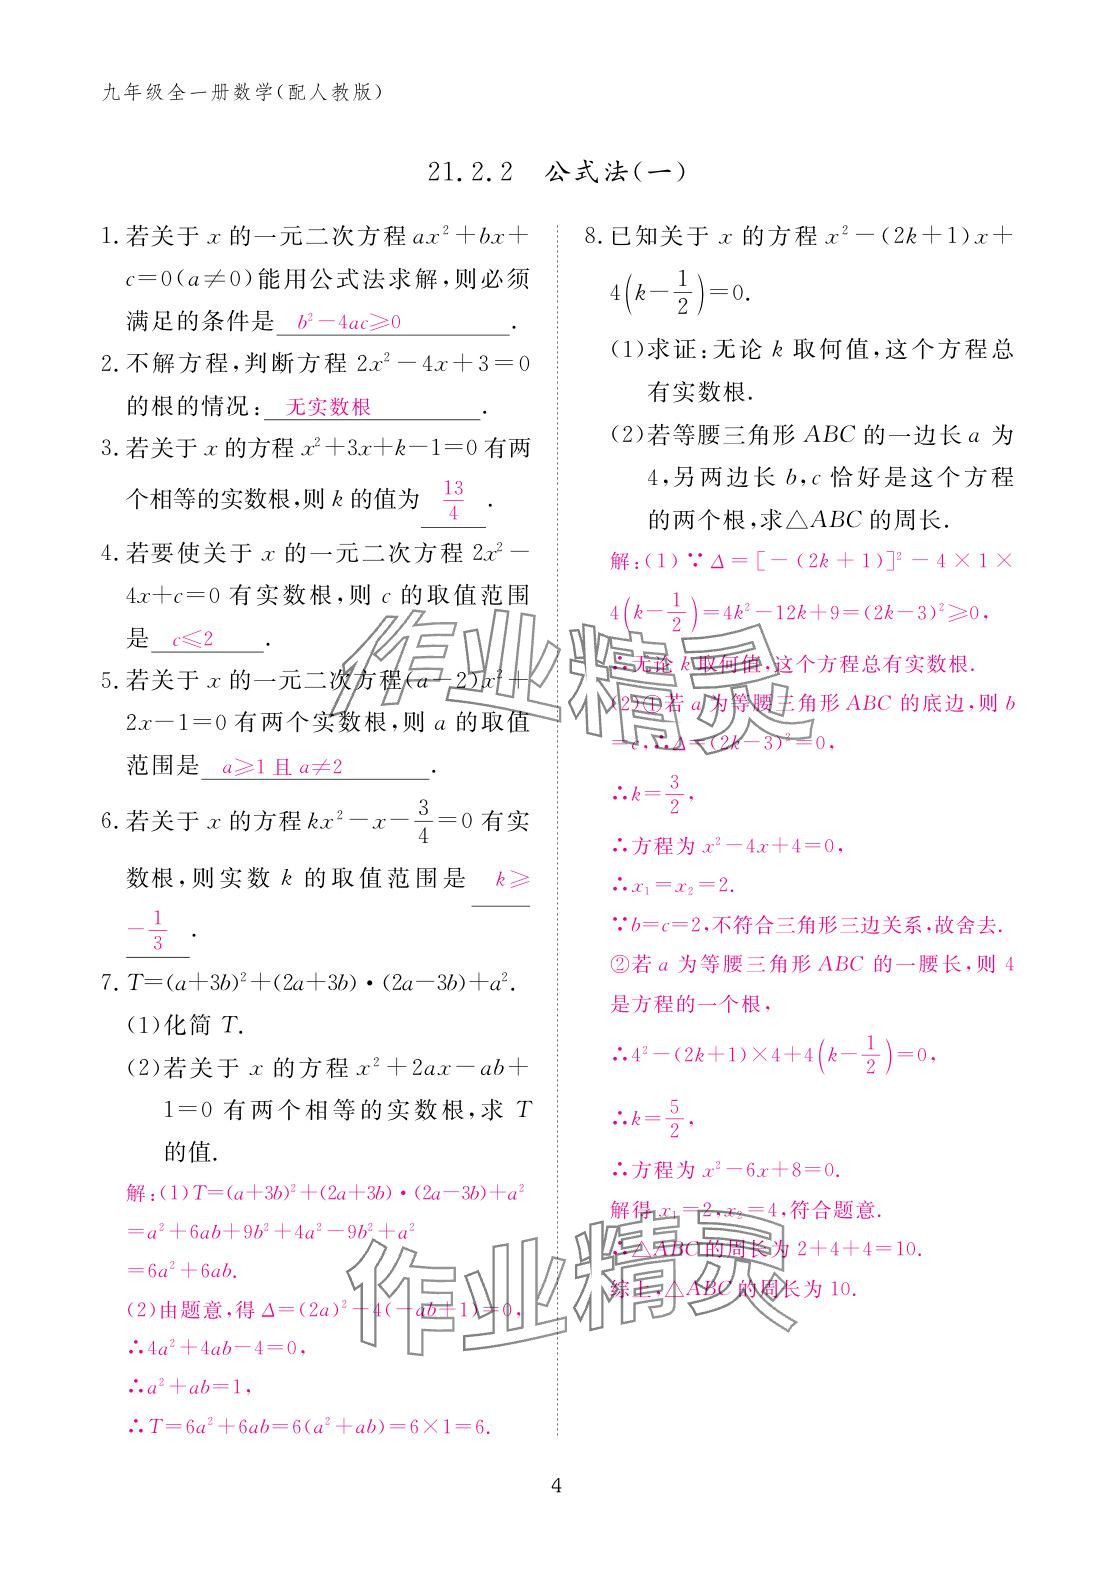 九年级全一册数学(配人教版)
21.2.2 公式法(一)
1. 若关于 x 的一元二次方程 ax²+bx+
c=0(a≠0)能用公式法求解,则必须
满足的条件是 b²-4ac≥0 .
2. 不解方程,判断方程 2x²-4x+3=0
的根的情况: 无实数根 .
3. 若关于 x 的方程 x²+3x+k-1=0 有两
个相等的实数根,则 k 的值为 13/4 .
4. 若要使关于 x 的一元二次方程 2x²-
4x+c=0 有实数根,则 c 的取值范围
是 c≤2 .
5. 若关于 x 的一元二次方程(a-2)x²+
2x-1=0 有两个实数根,则 a 的取值
范围是 a≥1 且 a≠2 .
6. 若关于 x 的方程 kx²-x-3/4=0 有实
数根,则实数 k 的取值范围是 k≥
-1/3 .
7. T=(a+3b)²+(2a+3b)·(2a-3b)+a².
(1)化简 T.
(2)若关于 x 的方程 x²+2ax-ab+
1=0 有两个相等的实数根,求 T
的值.
解:(1)T=(a+3b)²+(2a+3b)·(2a-3b)+a²
=a²+6ab+9b²+4a²-9b²+a²
=6a²+6ab.
(2)由题意,得 Δ=(2a)²-4(-ab+1)=0,
∴4a²+4ab-4=0,
∴a²+ab=1,
∴T=6a²+6ab=6(a²+ab)=6×1=6.
8. 已知关于 x 的方程 x²-(2k+1)x+
4(k-1/2)=0.
(1)求证:无论 k 取何值,这个方程总
有实数根.
(2)若等腰三角形 ABC 的一边长 a 为
4,另两边长 b,c 恰好是这个方程
的两个根,求△ABC 的周长.
解:(1)∵Δ=[-(2k+1)]²-4×1×
4(k-1/2)=4k²-12k+9=(2k-3)²≥0,
∴无论 k 取何值,这个方程总有实数根.
(2)①若 a 为等腰三角形 ABC 的底边,则 b
=c,∴Δ=(2k-3)²=0,
∴k=3/2,
∴方程为 x²-4x+4=0,
∴x₁=x₂=2.
∵b=c=2,不符合三角形三边关系,故舍去.
②若 a 为等腰三角形 ABC 的一腰长,则 4
是方程的一个根,
∴4²-(2k+1)×4+4(k-1/2)=0,
∴k=5/2,
∴方程为 x²-6x+8=0.
解得 x₁=2,x₂=4,符合题意.
∴△ABC 的周长为 2+4+4=10.
综上,△ABC 的周长为 10.
作业精灵
作业精灵
4